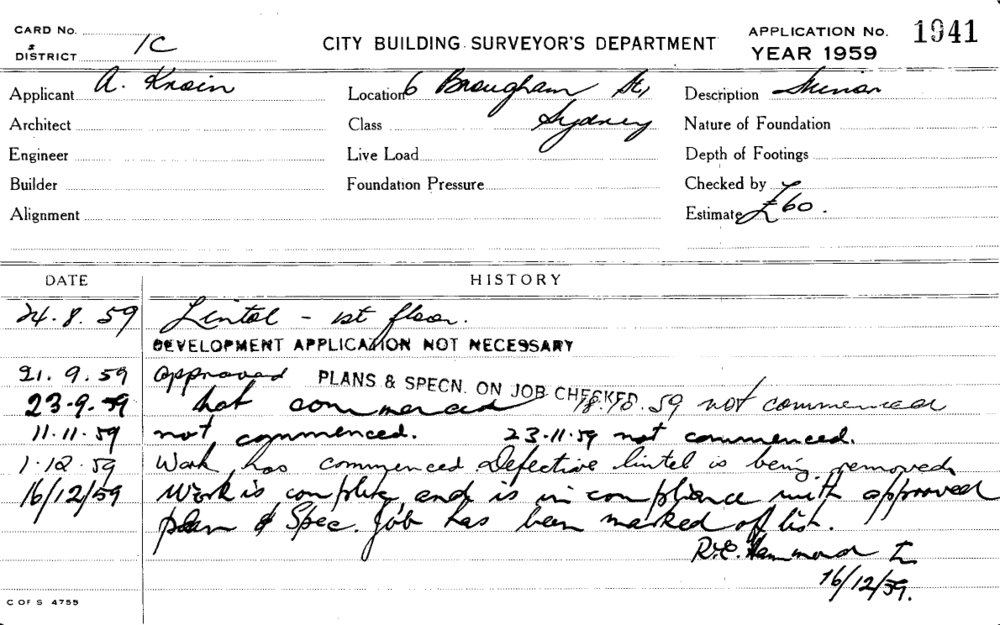 CARD No.
& DISTRICT 1C
CITY BUILDING SURVEYOR'S DEPARTMENT
APPLICATION No. 1941
YEAR 1959
Applicant A. Krain Location 6 Brougham St, Description Minor
Architect Class Sydney Nature of Foundation
Engineer Live Load Depth of Footings
Builder Foundation Pressure Checked by
Alignment Estimate £60.
DATE HISTORY
24.8.59 Lintol - 1st floor.
DEVELOPMENT APPLICATION NOT NECESSARY
21.9.59 approved PLANS & SPECN. ON JOB CHECKED
23-9-59 Not commenced 18.10.59 not commenced
11.11.59 not commenced. 23.11.59 not commenced.
1.12.59 Work has commenced Defective lintel is being removed
16/12/59 Work is complete and is in compliance with approved
plan & Spec. Job has been marked of list.
R.E. Hammond
16/12/59.
C OF S 4755